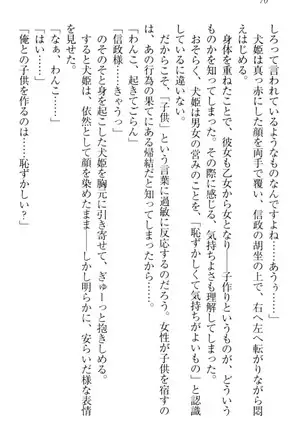 70
しろって言われているようなものなんですよね……あうぅ……」
犬姫は真っ赤にした顔を両手で覆い、信政の胡坐の上で、右へ左へ転がりながら悶
えはじめる。
身体を重ねたことで、彼女も乙女から女となり――子作りというものが、どういう
ものかを知ってしまった。その際に感じる、気持ちよさも理解してしまった。
おそらく、犬姫は男女の営みのことを、「恥ずかしくて気持ちがよいもの」と認識
しているに違いない。
だからこそ、「子供」という言葉に過敏に反応するのだろう。女性が子供を宿すの
は、あの行為の果てにある帰結だと知ってしまったから――。
「わんこ、起きてごらん」
「信政様……きゃうっ」
そのそと身を起こした犬姫を胸元に引き寄せて、ぎゅーっと抱きしめる。
すると犬姫は、依然として顔を染めたまま――しかし明らかな、安らいだ様な表情
を見せた。
「なぁ、わんこ……」
「はい……」
「俺との子供を作るのは……恥ずかしい？」